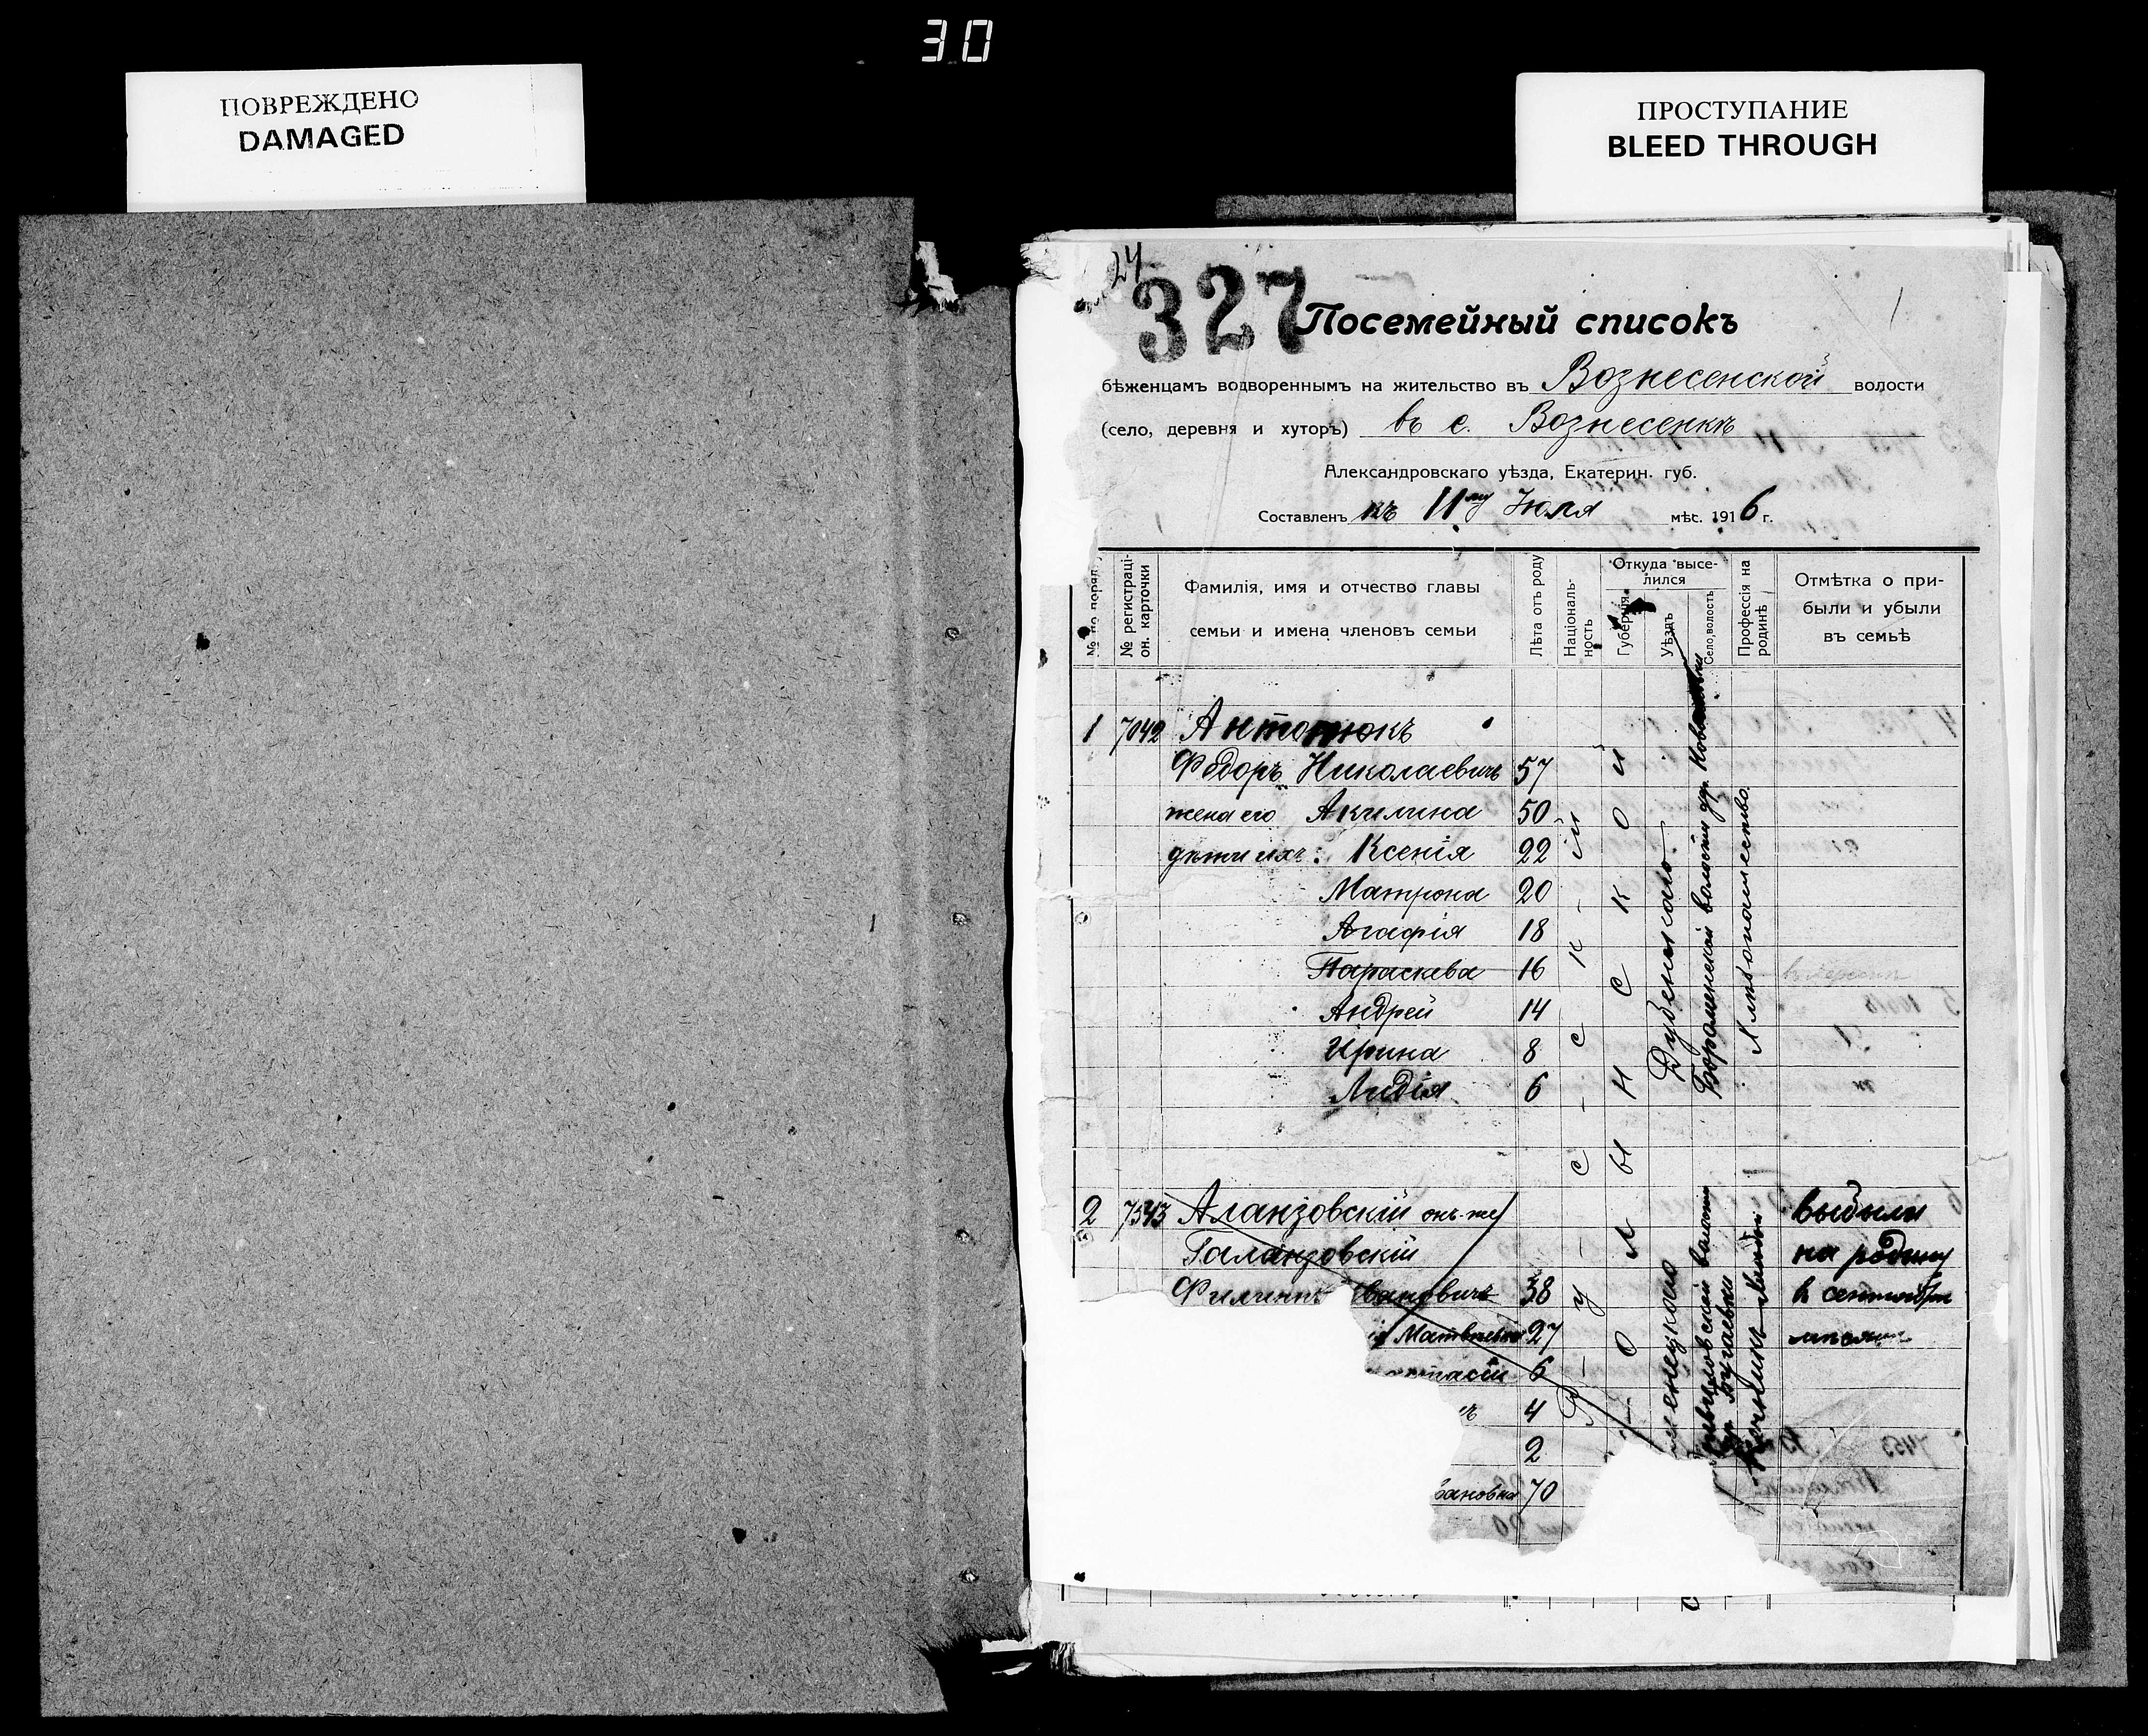 30
ПОВРЕЖДЕНО
DAMAGED
ПРОСТУПАНИЕ
BLEED THROUGH
24
327
Посемейный списокъ
бѣженцамъ водвореннымъ на жительство въ Вознесенской волости
(село, деревня и хуторъ) въ с. Вознесенкѣ
Александровскаго уѣзда, Екатерин. губ.
Составленъ къ 11му Июля мѣс. 1916 г.
№ по поряд.
№ регистраціон. карточки
Фамилія, имя и отчество главы
семьи и имена членовъ семьи
Лѣта отъ роду
Національность
Откуда выселился
Губернія
Уѣздъ
Село, волость
Профессія на родинѣ
Отмѣтка о прибыли и убыли
въ семьѣ
1 7042 Антонюкъ
Федоръ Николаевичъ 57
жена его Акилина 50
дѣти ихъ: Ксенія 22
Матрона 20
Агафія 18
Параскева 16
Андрей 14
Ирина 8
Лидія 6
Русскій
Волынской
Дубенскаго
волости дер.
Хлѣбопашество
2 7343 Аланзовскій онъ-же выбыли
Галанзовскій на родину
Филиппъ Ивановичъ 38 в сентябре
Матвѣевна 27 месяце
тасій 6
4
2
вановна 70
менецкаго
волости